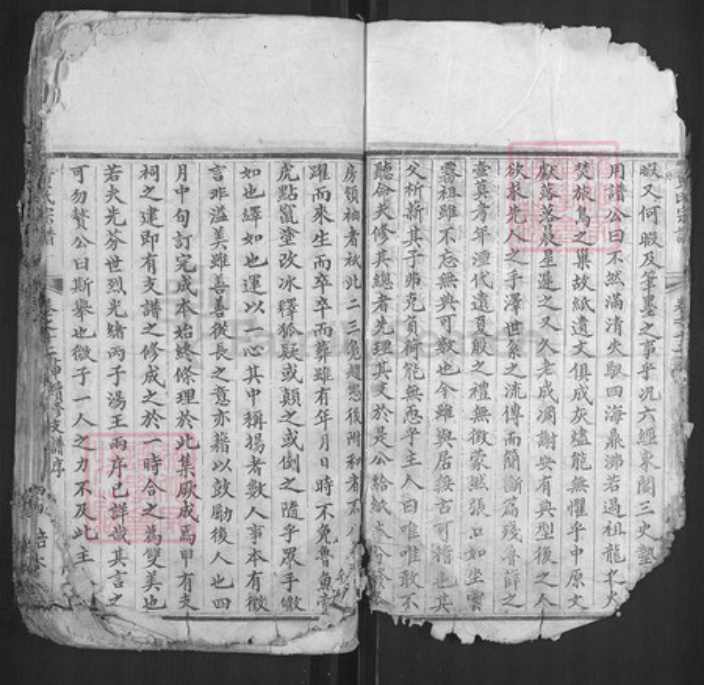 暇又何暇及筆墨之事乎況六經東閣三史塾
用譜公曰不然滿清失馭四海鼎沸若過祖龍之火
焚旅鳥之巢故紙遺文俱成灰燼能無懼乎中原文
獻落落晨星遲之又久老成凋謝安有典型後之人
欲求先人之手澤世系之流傳而簡斷篇殘魯薛之
壹真考年湮代遠夏殷之禮無徵蒙然張口如坐雲
霧祖雖不忘無典可數也今雖與居無古可稽也其
父析薪其子弗克負荷能無恧乎主人曰唯唯敢不
聽命夫修其總者先理其支於是公給紙
房領袖者秋此二三兔趙愆後附和者不
躍而來生而卒卒而葬雖有年月日時不免魯魚亥
虎點竄塗改冰釋狐疑或顛之或倒之隨乎眾手繳
如也繹如也運以一心其中稱揚者數人事本有徵
言非溢美雖善善從長之意亦藉以鼓勵後人也四
月中旬訂完成本始終條理於此集厥成焉甲有支
祠之建即有支譜之修成之於一時合之為雙美也
若夫先芬世烈光緒丙子湯王兩序已詳哉其言之
可勿贅公曰斯舉也微予一人之力不及此主
氏宗譜
續修支譜序